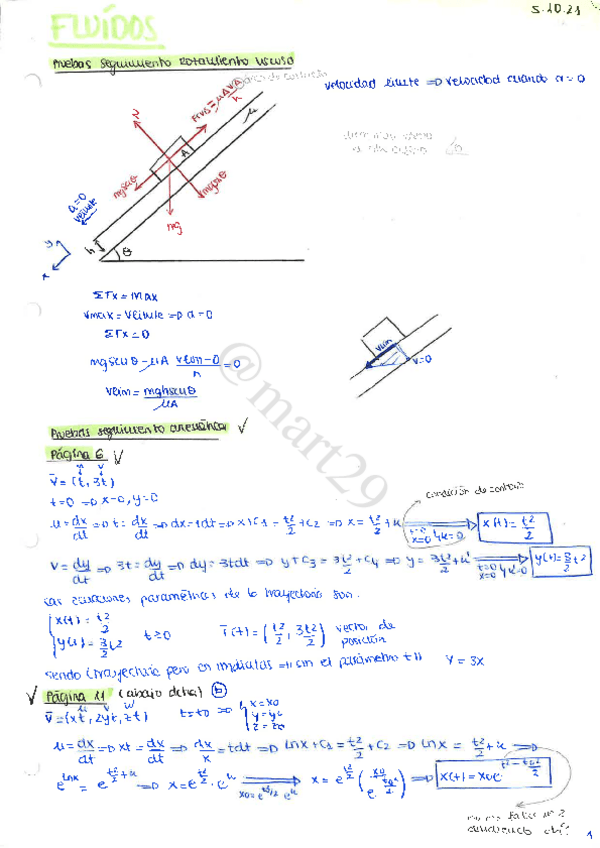 5.10.21
FLUÍDOS
Pruebas seguimiento rozamiento viscoso
área de contacto
velocidad límite => velocidad cuando a=0
N
Fvis = μΔvA/h
μ
A
mgsenθ
mgcosθ
mg
a=0
vlimite
y
x
h
θ
ΣFx = max
vmax = vlimite => a=0
ΣFx = 0
mgsenθ - μA (vlim-0)/h = 0
vlim = mghsenθ/μA
vlim
v=0
@mart29
Pruebas seguimiento cinemática √
Página 6 √
u v
v̄ = (t, 3t)
t=0 => x=0, y=0
condición de contorno
u = dx/dt => t = dx/dt => dx = tdt => x+C1 = t²/2 + C2 => x = t²/2 + k t=0 x=0 k=0 x(t) = t²/2
v = dy/dt => 3t = dy/dt => dy = 3tdt => y+C3 = 3t²/2 + C4 => y = 3t²/2 + k' t=0 x=0 k'=0 y(t) = 3/2 t²
Las ecuaciones paramétricas de la trayectoria son:
x(t) = t²/2
y(t) = 3/2 t² t≥0 r̄(t) = (t²/2, 3t²/2) vector de posición
siendo (trayectoria pero sin el parámetro t) y = 3x
√ Página 11 (abajo dcha) b
u v w
v̄ = (xt, 2yt, zt) t=t0 => x=x0
y=y0
z=z0
u = dx/dt => xt = dx/dt => dx/x = tdt => lnx + C1 = t²/2 + C2 => lnx = t²/2 + k =>
e^lnx = e^(t²/2 + k) => x = e^(t²/2) · e^k x0 = e^(t0²/2) e^k x = e^(t²/2) (x0/e^(t0²/2)) => x(t) = x0e^(t²-t0²/2)
1